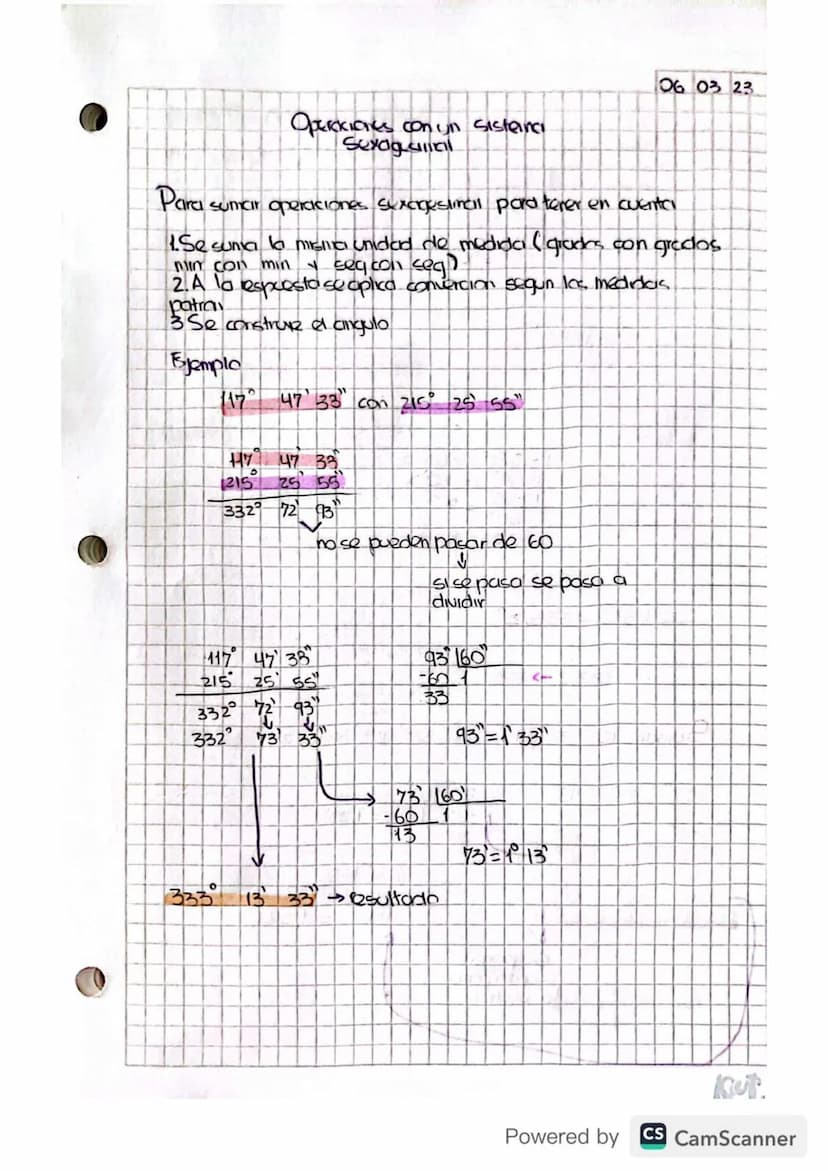 06 03 23
Operaciones con un sistema
Sexagesimal
Para sumar operaciones sexagesimal para tener en cuenta
1.Se suma la misma unidad de medida (grados con grados
min con min y seg con seg)
2.A la respuesta se aplica conversion segun las medidas
patron
3 Se construye el angulo
Ejemplo
117° 47' 33" con 215° 25' 55"
117° 47' 33"
215° 25' 55"
332° 72' 93"
no se pueden pasar de 60
↓
si se pasa se pasa a
dividir
117° 47' 33" 93" |60"
215° 25' 55" -60 1 ←
332° 72' 93" 33
↓ ↓
332° 73' 33" 93"=1' 33"
→ 73' |60'
-60 1
13
73'=1° 13'
333° 13' 33" → resultado
Kiut.
Powered by CS CamScanner